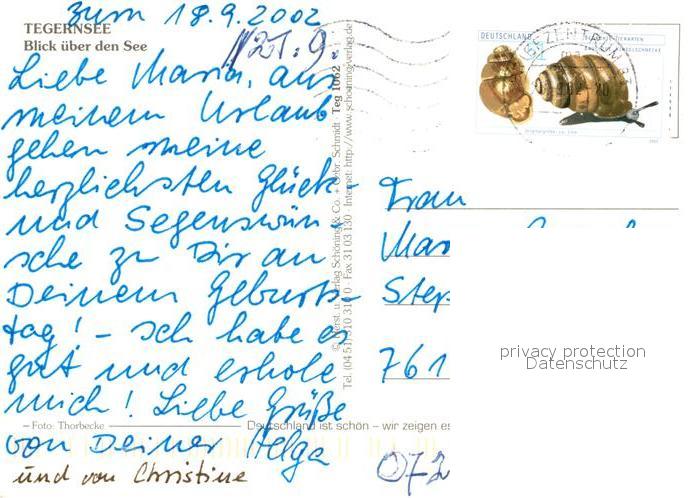 zum 18.9.2002
TEGERNSEE
Blick über den See
21.9.
Liebe Maria, aus
meinem Urlaub
gehen meine
herzlichsten Glück-
und Segenswün-
sche zu Dir an
Deinem Geburts-
tag! - Ich habe es
gut und erhole
mich! Liebe Grüße
von Deiner Helga
und von Christine
– Foto: Thorbecke
Deutschland ist schön – wir zeigen es
Tel. (04 51) 3 10 31 0 · Fax 31 03 130 · Internet: http://www.schoening-verlag.de
© Herst. u. Verlag Schöning & Co. + Gebr. Schmidt · Teg 1062
DEUTSCHLAND
BRIEFZENTRUM
Frau
Mar
Step
761
072
privacy protection
Datenschutz